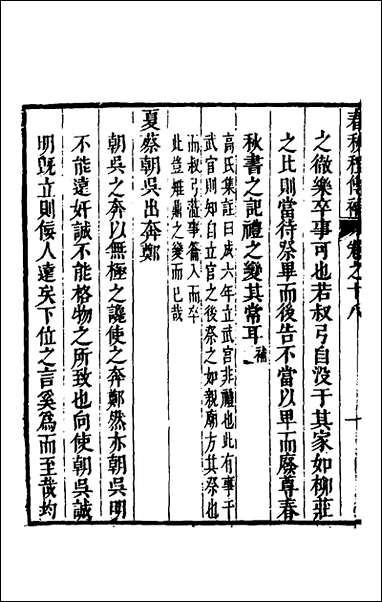 春秋程傳補 卷之十八
之徹樂卒事可也若叔弓自没于其家如柳莊
之比則當待祭畢而後告不當以卑而廢尊春
秋書之記禮之變其常耳補
高氏集註曰成六年立武宮非禮也此有事于
武宮則知自立宮之後祭之如親廟方其祭也
而叔弓涖事籥入而卒
此豈雉鼎之變而已哉
夏蔡朝吳出奔鄭
朝吳之奔以無極之讒使之奔鄭然亦朝吳明
不能遠奸誠不能格物之所致也向使朝吳誠
明既立則佞人遠矣下位之言奚為而至哉約